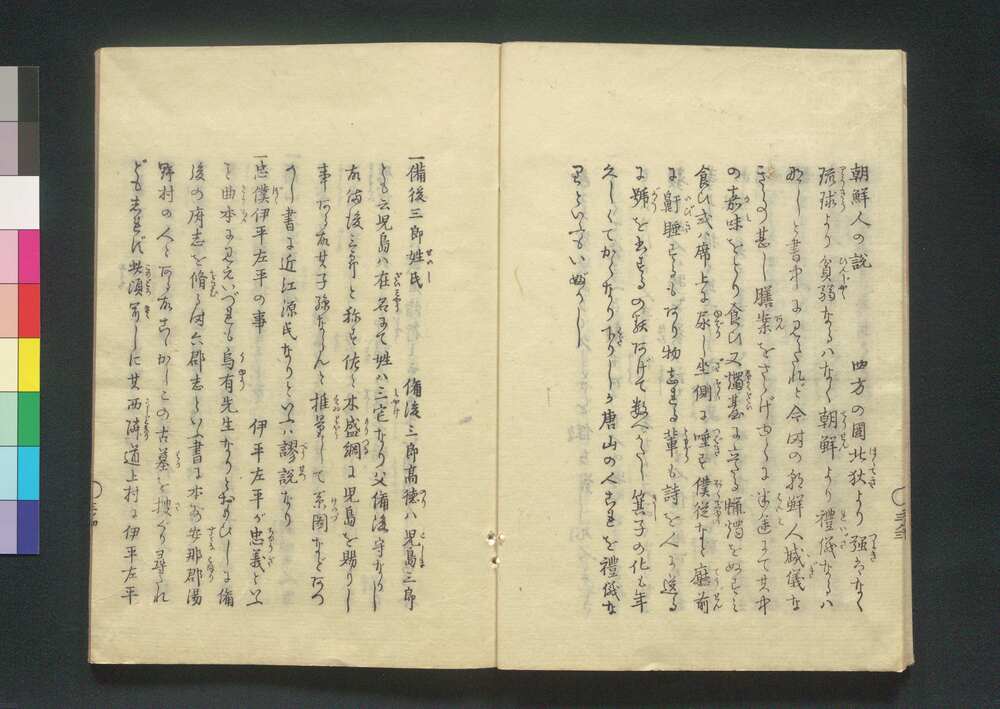 朝鮮人の説　四方の國北狄より強きはなく
琉球より貧弱なるハなく朝鮮より禮儀なるハ
なしと書中に見えたれど今時の朝鮮人威儀な
きこと甚し膳柴をさゝげゆくに半途にて其中
の嘉味をとり食ひ又燭臺に立たる蝋燭をぬすミ
食ひ或ハ席上に尿し坐側に唾す僕従なと庭前
に鼾睡するもあり物しれる輩も詩を人に送る
に號を書するの誤あげて数へかたし箕子の化も年
久しくて
唐山の人これを禮儀な
りといふもいぬかし
一備後三郎姓氏　備後三郎高徳ハ児島三郎
とも云児島ハ在名にて姓ハ三宅なり父備後守なりし
故備後三郎と称す佐々木盛綱に児島を賜りし
事ある故其子孫ならんと推量して系圖などにつ
りし書に近江源氏なりといふハ謬説なり
一忠僕伊平左平の事　伊平左平が忠義といふ
こと曲本に見えいづれも烏有先生なりとおもひしに備
後の府志を脩る時六郡志といふ書に本州安那郡湯
野村の人とある故こかしこの古墓を捜り尋たれ
どもしれず此頃聞しに其西隣道上村に伊平左平